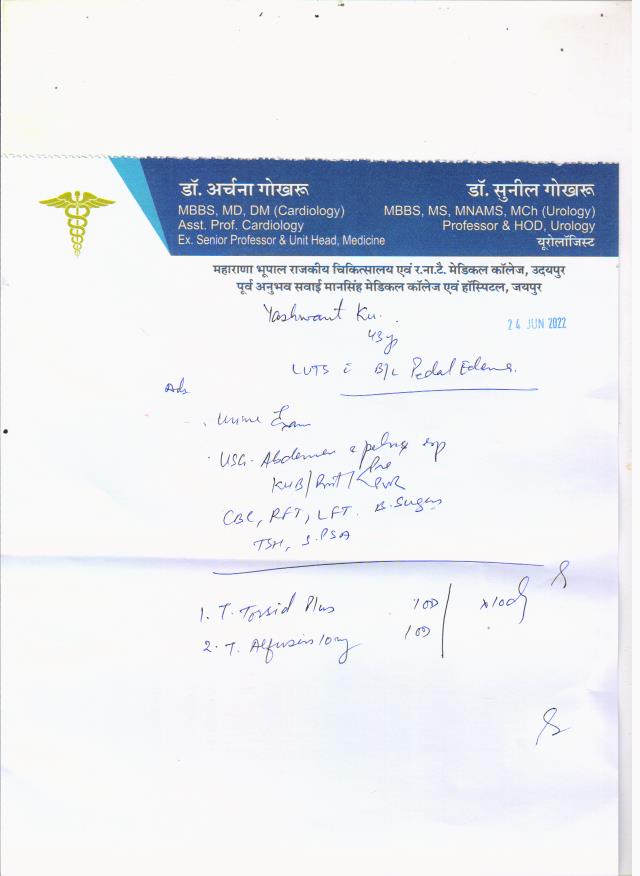 डॉ. अर्चना गोखरू
MBBS, MD, DM (Cardiology)
Asst. Prof. Cardiology
Ex. Senior Professor & Unit Head, Medicine
डॉ. सुनील गोखरू
MBBS, MS, MNAMS, MCh (Urology)
Professor & HOD, Urology
यूरोलॉजिस्ट
महाराणा भूपाल राजकीय चिकित्सालय एवं र.ना.टै. मेडिकल कॉलेज, उदयपुर
पूर्व अनुभव सवाई मानसिंह मेडिकल कॉलेज एवं हॉस्पिटल, जयपुर
Yashwant Ku.
24 JUN 2022
43y
LUTS c̄ B/L Pedal Edema.
Adv
. Urine Exam
. USG. Abdomen
Pre
KUB/Prost/ PVR
CBC, RFT, LFT. B. Sugar
TSH, S. PSA
1. T. Torsid Plus 100 x10d
2. T. Alfusin 10mg 100